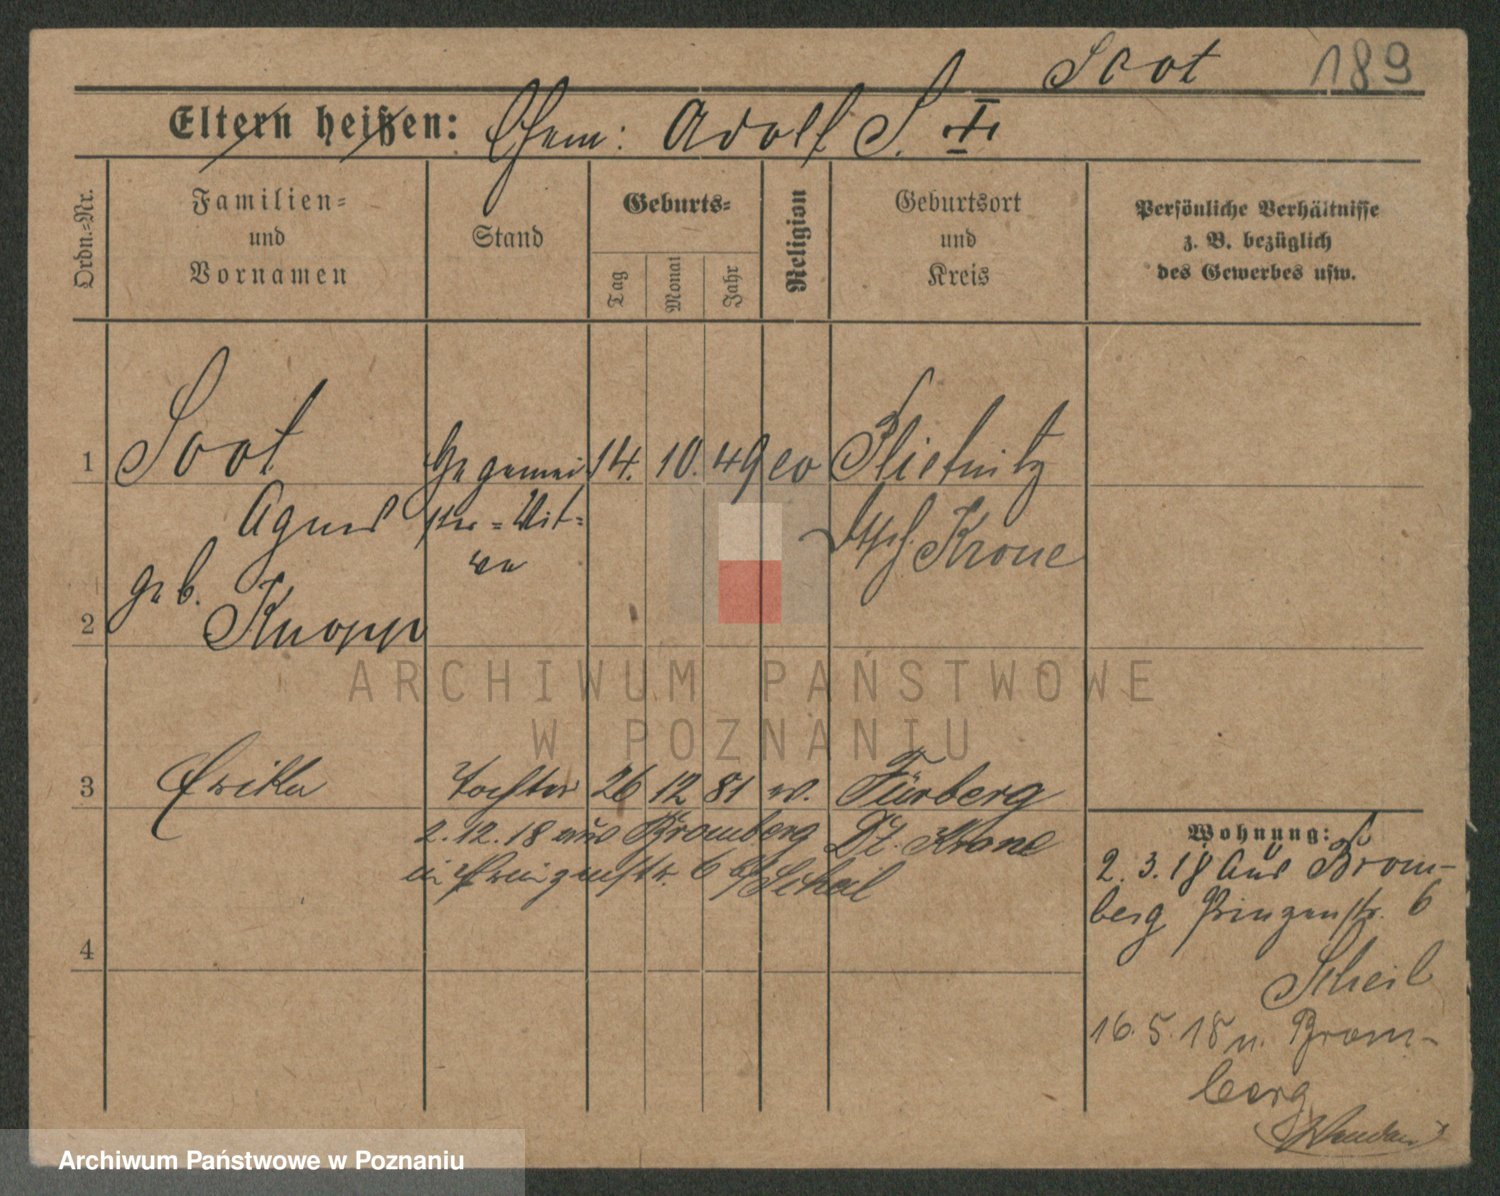 Soot 189
Eltern heißen: Ehem: Adolf S. I
Ordn.-Nr.
Familien-
und
Vornamen
Stand
Geburts-
Tag
Monat
Jahr
Religion
Geburtsort
und
Kreis
Persönliche Verhältnisse
z. B. bezüglich
des Gewerbes usw.
1 Soot 14. 10. 49 ev Plietnitz
Agnes Wit-
we Dtsch. Krone
geb.
2 Knopp
ARCHIWUM PAŃSTWOWE
W POZNANIU
3 Erika Tochter 26 12 81 ev. Fürberg
2.12.18 aus Bromberg Dt. Krone
in Prinzenstr. 6 b/ Scheil
4
Wohnung:
2.3.18 aus Brom-
berg Prinzenstr. 6
Scheil
16.5.18 n. Brom-
berg
Archiwum Państwowe w Poznaniu